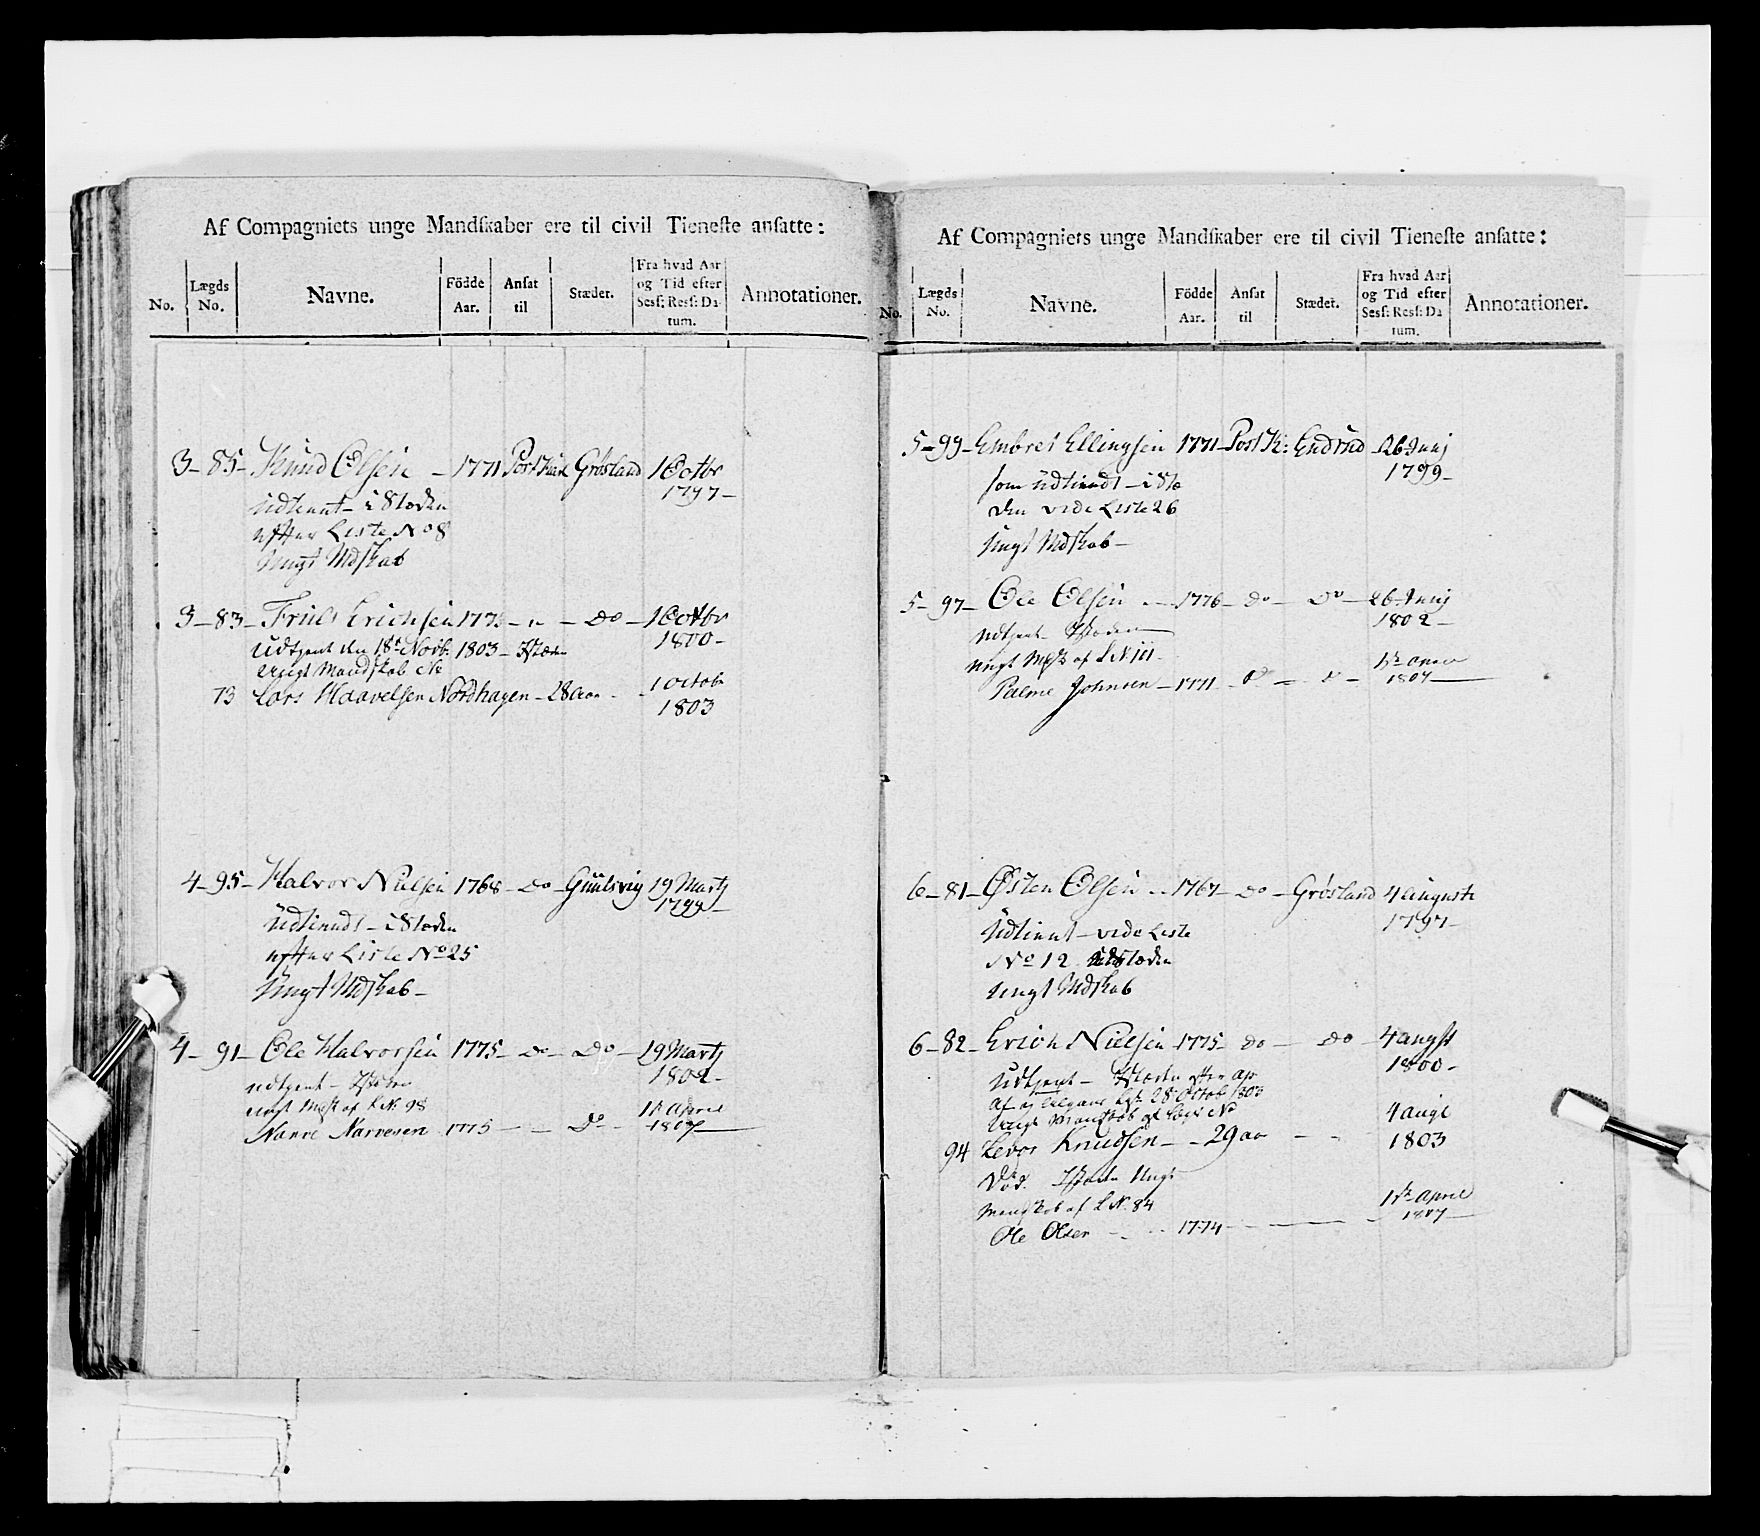 Af Compagniets unge Mandſkaber ere til civil Tieneſte anſatte:
No. Lægds No. Navne. Födde Aar. Anſat til Stædet. Fra hvad Aar og Tid efter Sesſ: Resſ: Datum. Annotationer.
3 – 85 – Knud Olsen – 1771 Grösland 1 Octbr
1797 –
udtient – i Stæden
efter Liste No 8
ungt Mdskab
3 – 83 – Erichsen 1775 – " – Do – 1 Octbr
1800 –
udtjent den 18de Novb. 1803 – Istæden
ungt Mandskab No
73 Lars Haavelsen Nordhagen – 28 aar – 1 Octobr
1803
4 – 95 – Halvor Nielsen 1768 – Do – Gulsvig 19 Martj
1799 –
udtiendt – i Stæden
efter Liste No 25
ungt Mdskab –
4 – 91 – Ole Halvorsen 1775 – Do – Do – 19 Martj
1802 –
udtjent – Isteden
ungt Msk af L No 98
1ste April
Narve Narvesen 1775 – – Do – 1807
Af Compagniets unge Mandſkaber ere til civil Tieneſte anſatte:
No. Lægds No. Navne. Födde Aar. Anſat til Stædet. Fra hvad Aar og Tid efter Sesſ: Resſ: Datum. Annotationer.
5 – 99 – Embret Ellingsen 1771 – Post K: Endrud – 26 Junj
1799 –
som udtiendt – i Stæ
den vide Liste 26
ungt Mdskab –
5 – 97 – Ole Olsen – 1776 – do – Do – 26 Junij
1802 –
udtjent Isteden
ungt Msk af L N. 111 –
Palme Johnsen – 1771 – Do – Do –
1807
6 – 81 – Østen Olsen – 1767 – Do – Grösland 4 Auguste
1797 –
udtient – vide Liste
No 12 istæden
ungt Mdskab
6 – 82 – Erich Nielsen 1775 – do – Do – 4 Augst
1800 –
udtjent – Istæden efter
28 Octob 1803
4 Augt
94 Levor Knudsen – 29 aar – 1803
Död. Isteden ungt
Mandskab af L N. 84
1ste April
Ole Olsen – 1774 – 1807